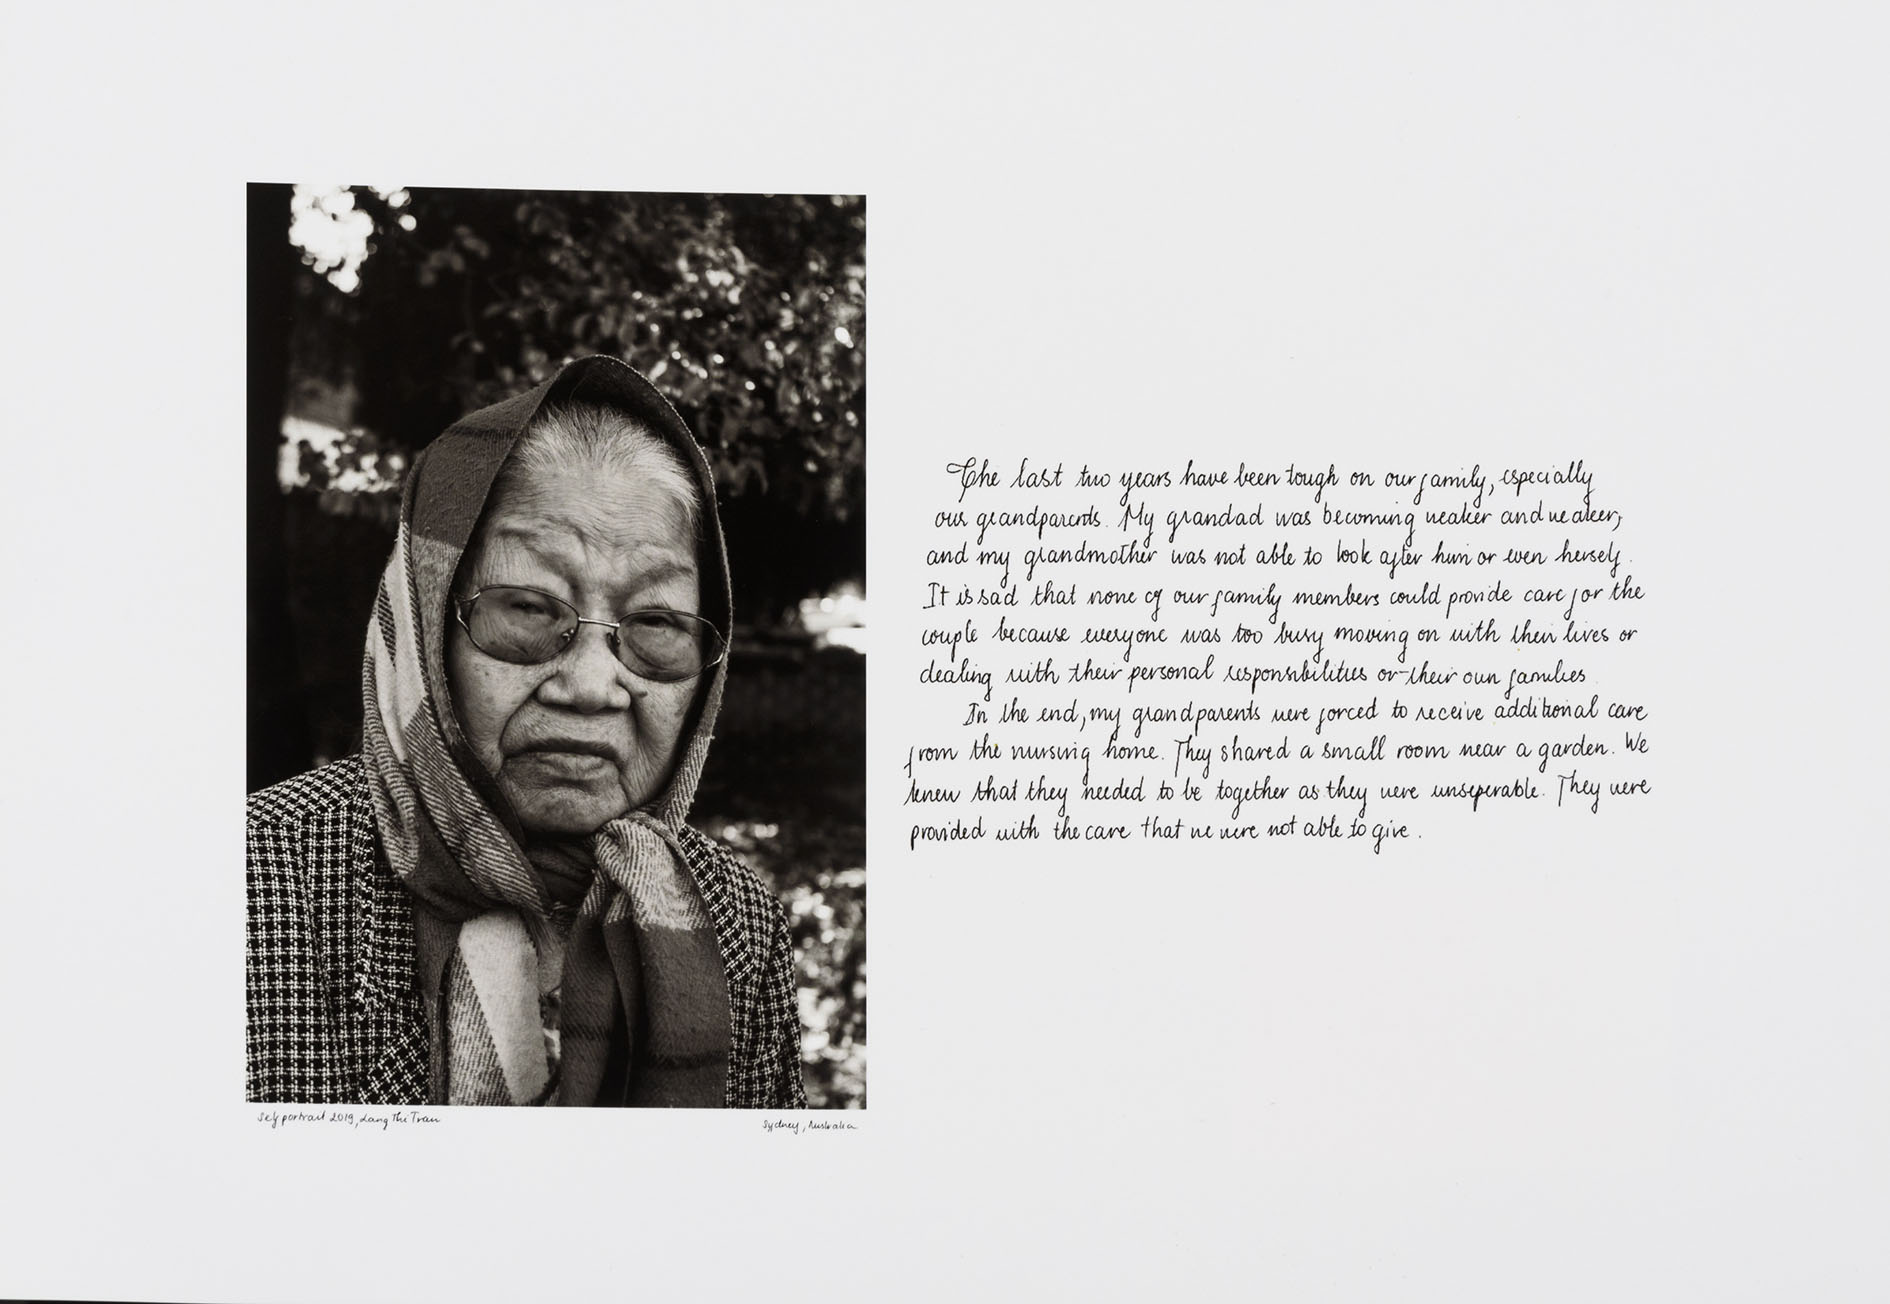 The last two years have been tough on our family, especially
our grandparents. My grandad was becoming weaker and weaker,
and my grandmother was not able to look after him or even herself.
It is sad that none of our family members could provide care for the
couple because everyone was too busy moving on with their lives or
dealing with their personal responsibilities or their own families.
In the end, my grandparents were forced to receive additional care
from the nursing home. They shared a small room near a garden. We
knew that they needed to be together as they were unseperable. They were
provided with the care that we were not able to give.
Self portrait 2019, Lang Thi Tran
Sydney, Australia